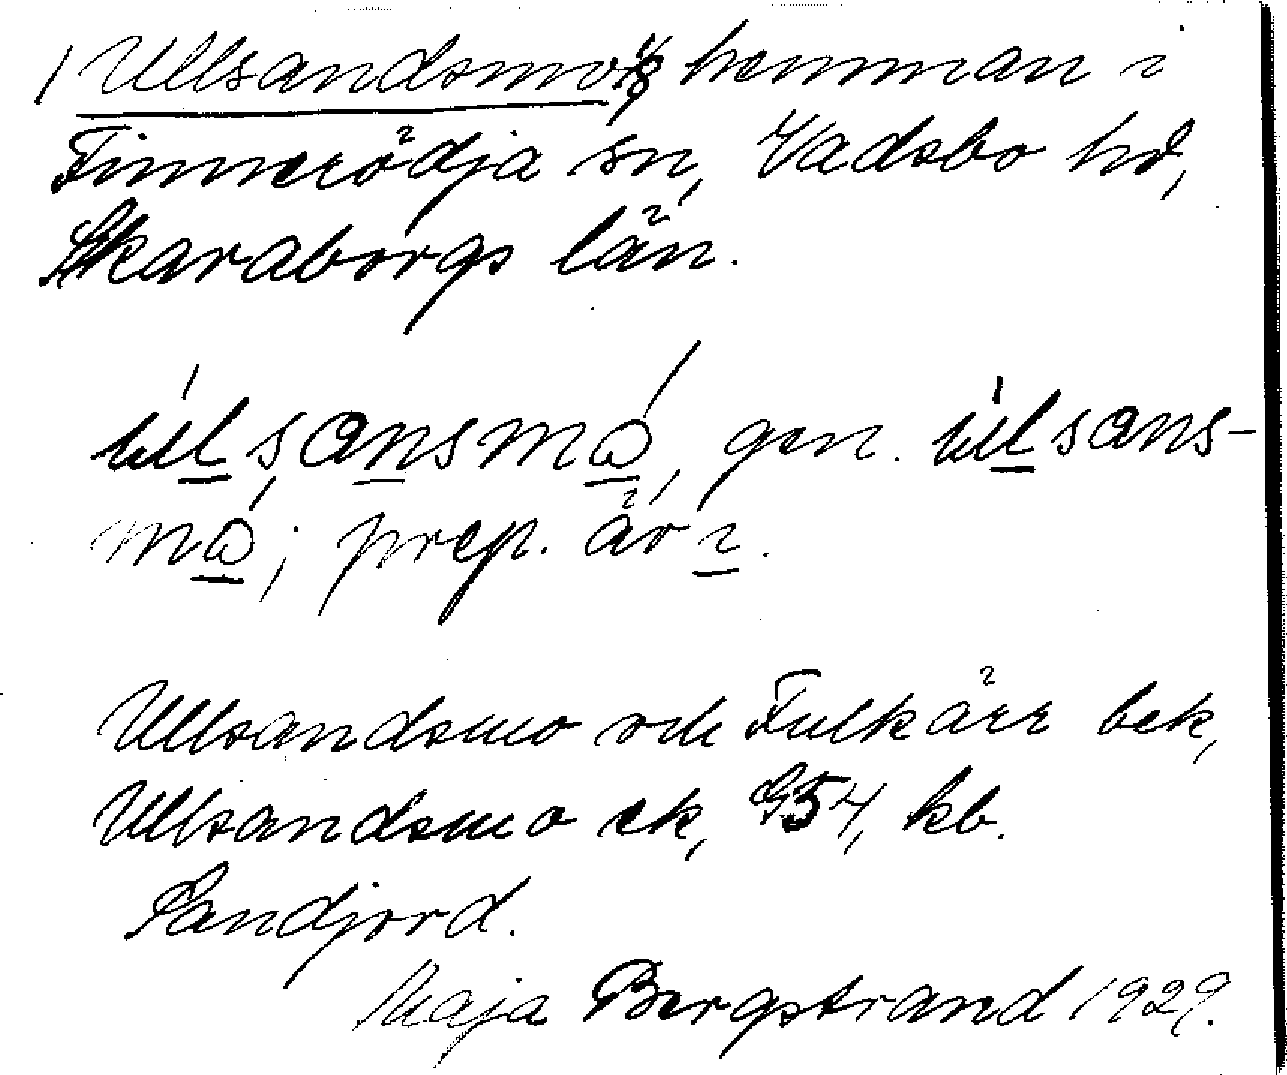 1 Ullsandsmo, hemman i
Finnerödja sn, Vadsbo hd,
Skaraborgs län.
ùlsansmɷ́, gen. ùlsans-
mɷ́; prep. är i.
Ullsandsmo och Fulkärr bek,
Ullsandsmo ek, G54, kb.
Sandjord.
Maja Bergstrand 1929.